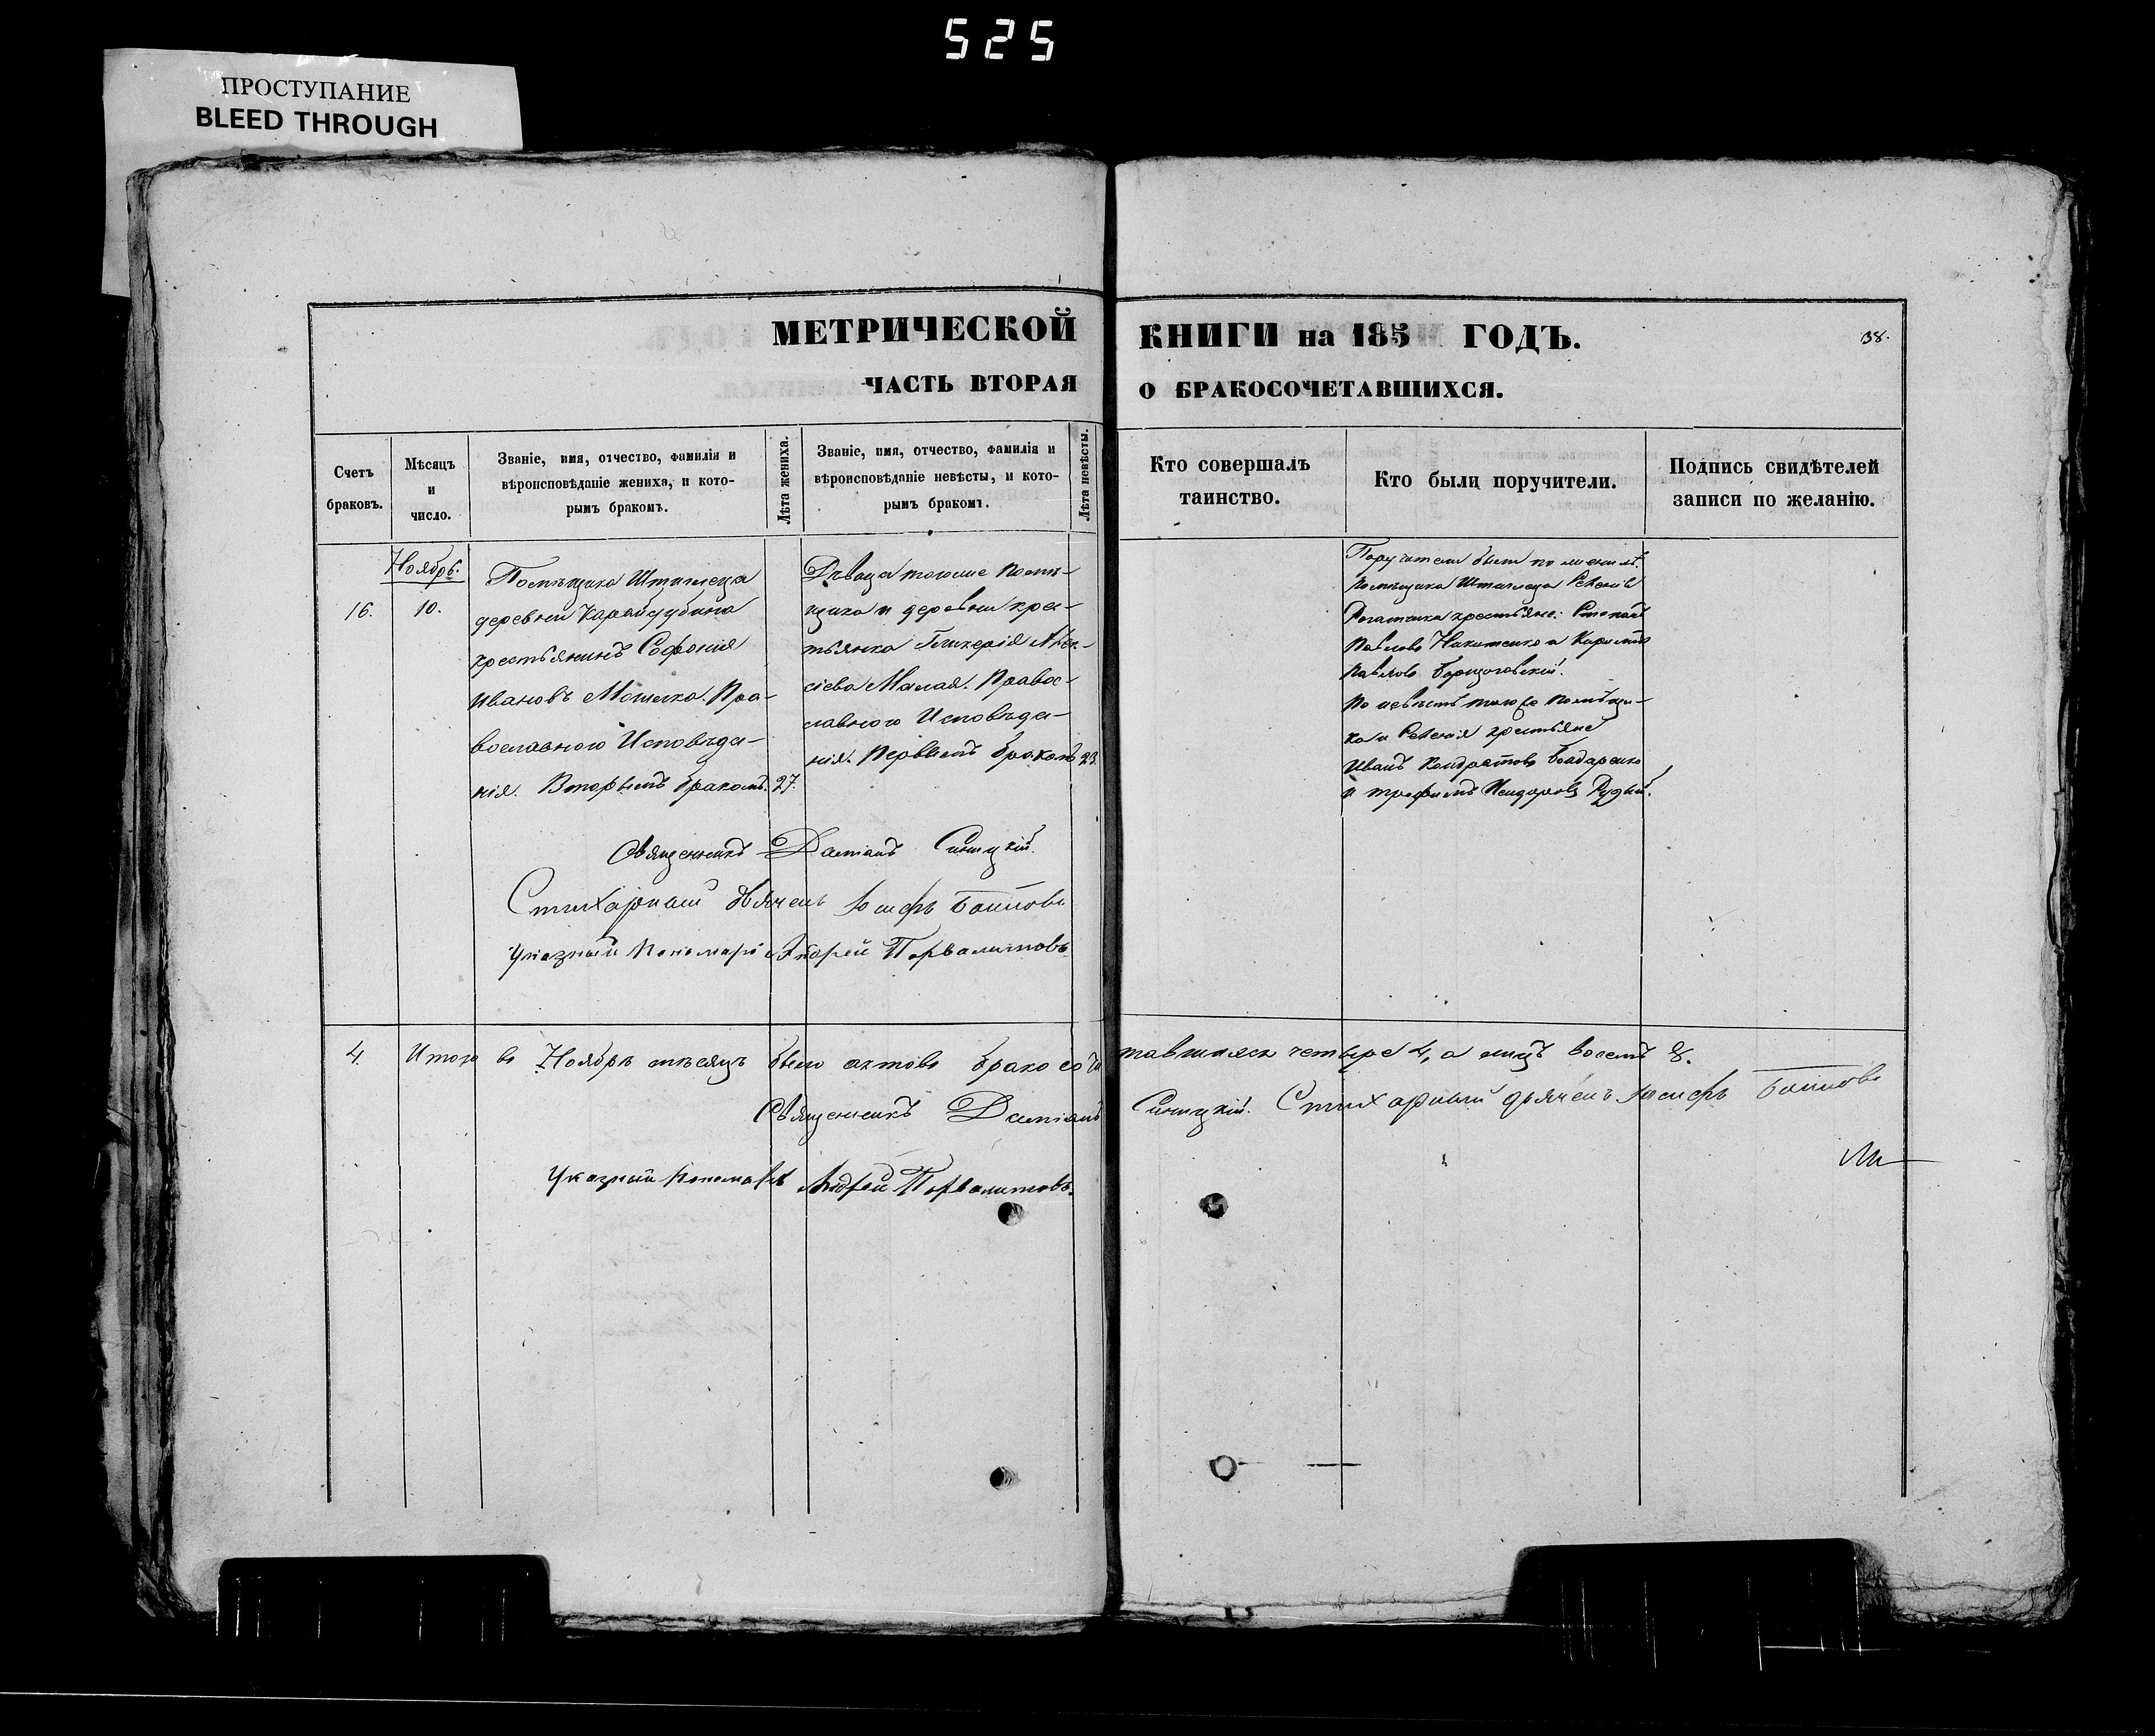 525
ПРОСТУПАНИЕ
BLEED THROUGH
МЕТРИЧЕСКОЙ КНИГИ на 185 ГОДЪ.
38.
ЧАСТЬ ВТОРАЯ О БРАКОСОЧЕТАВШИХСЯ.
Счетъ
браковъ.
Мѣсяцъ
и
число.
Званіе, имя, отчество, фамилія и
вѣроисповѣданіе жениха, и кото-
рымъ бракомъ.
Лѣта жениха.
Званіе, имя, отчество, фамилія и
вѣроисповѣданіе невѣсты, и кото-
рымъ бракомъ.
Лѣта невѣсты.
Кто совершалъ
таинство.
Кто были поручители.
Подпись свидѣтелей
записи по желанію.
Ноябрь.
16.
10.
Помѣщика Штиглеца
деревни
крестьянинъ Софонія
Ивановъ Пра-
вославного Исповѣда-
нія. Вторымъ бракомъ.
27.
Дѣвица тогоже Помѣ-
щика и деревни крес-
тьянка Гликерія Алек-
сіева Малая. Правос-
лавного Исповѣда-
нія. Первымъ бракомъ
23.
Поручители были по женихѣ:
помѣщика Штиглеца
крестьяне: Стефанъ
Павловъ Никитенко и Кириллъ
Павловъ
По невѣстѣ тогоже помѣщи-
ка и крестьяне
Иванъ Кондратовъ Бондаренко
и Трофимъ Рудый.
Священникъ Даміанъ Синицкій.
Стихарный дьячекъ Іосифъ
Указный Пономарь Андрей
4. Итого въ Ноябрѣ мѣсяцѣ было актовъ бракосочетавшихся четыре 4, а лицъ восемь 8.
Священникъ Даміанъ Синицкій. Стихарный дьячекъ Іосифъ
Указный Пономарь Андрей